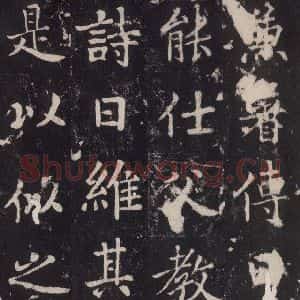 傳曰
能仕父教
詩曰維其
是以似之
Shufawang.CN